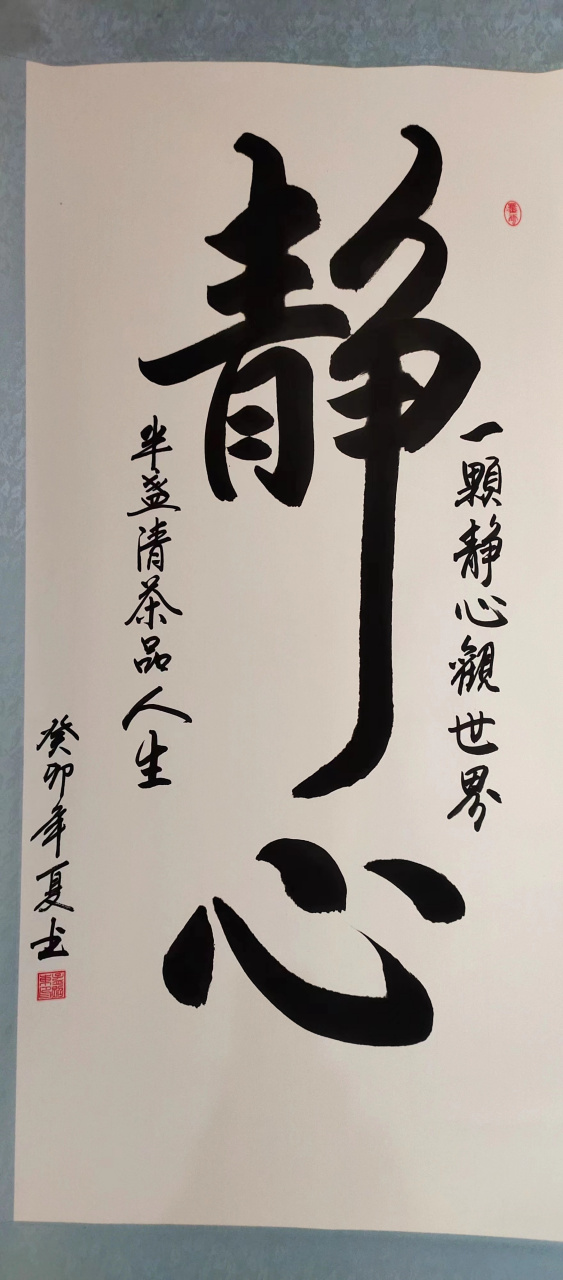 静心
一顆静心觀世界
半盏清茶品人生
癸卯年夏书